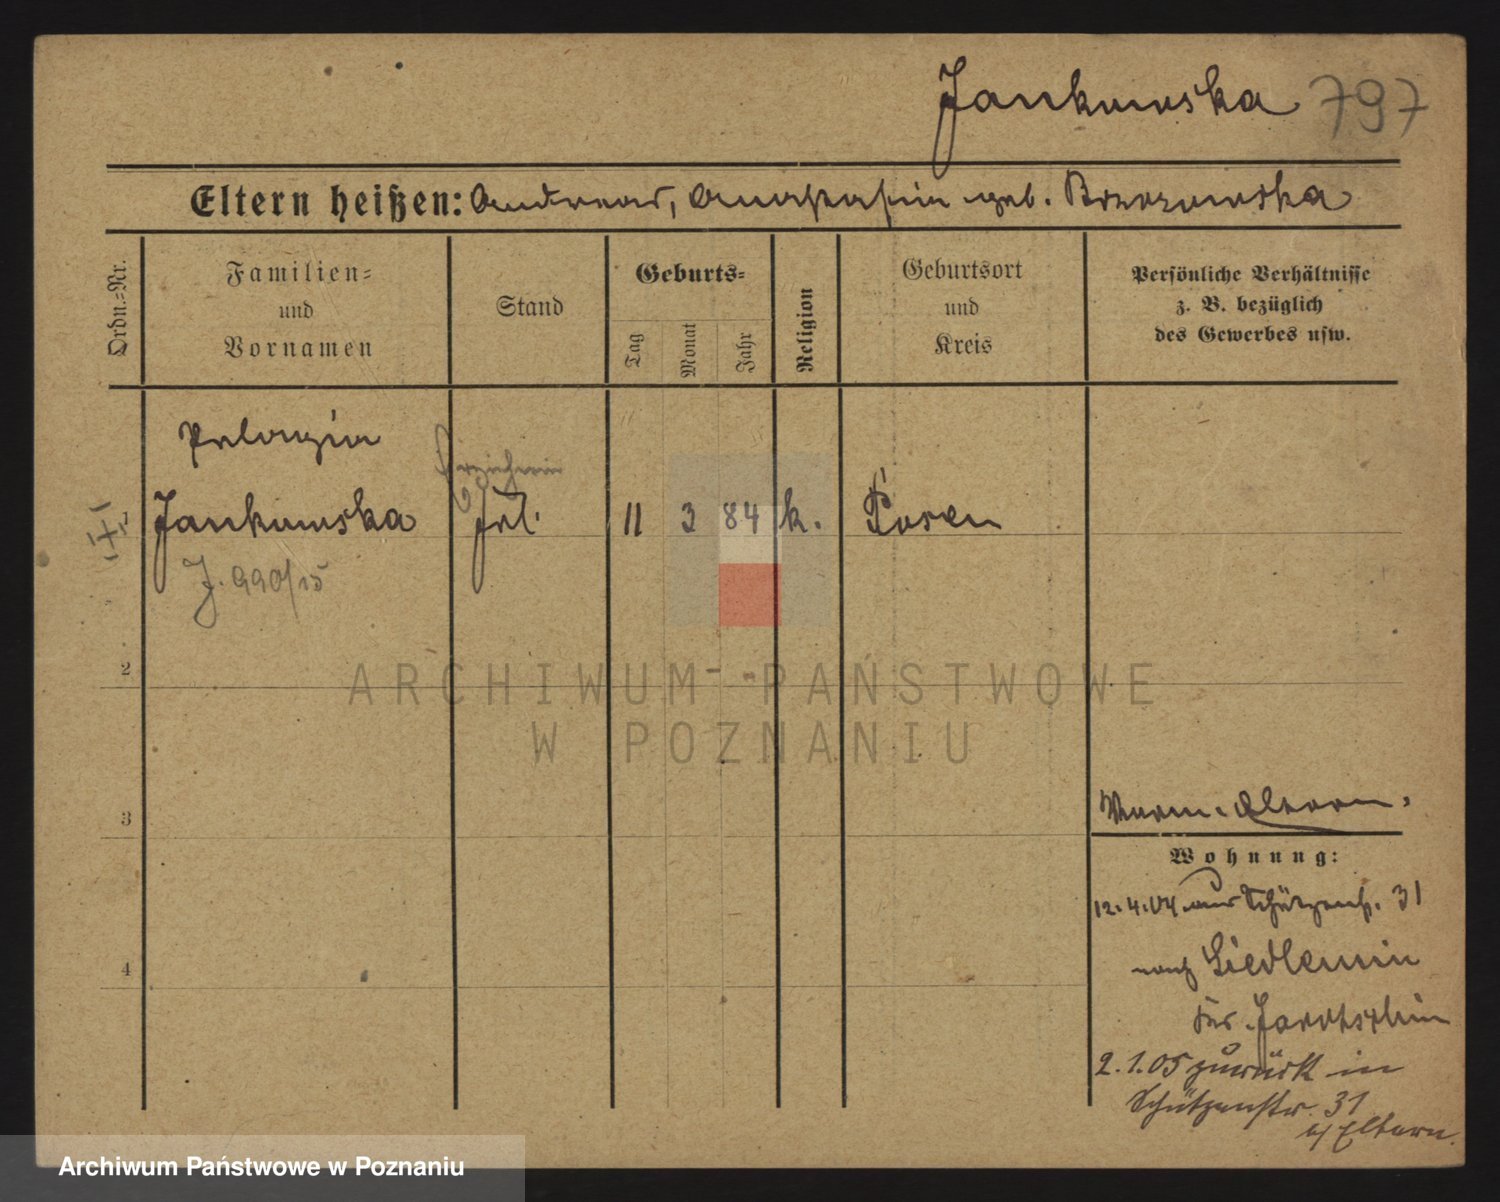 Jankowska 797
Eltern heißen: Andreas, Anastasia geb. Brzozowska
Ordn.-Nr.
Familien-
und
Vornamen
Stand
Geburts-
Tag
Monat
Jahr
Religion
Geburtsort
und
Kreis
Persönliche Verhältnisse
z. B. bezüglich
des Gewerbes usw.
Pelagia
Erzieherin
1 Jankowska Frl. 11 3 84 k. Posen
J. 990/15
2
ARCHIWUM PAŃSTWOWE
W POZNANIU
3
Eltern.
Wohnung:
12.4.04 aus Schützenstr. 31
nach Siedlemin
Krs. Jarotschin
2.1.05 zurück in
Schützenstr. 31
b/ Eltern.
4
Archiwum Państwowe w Poznaniu